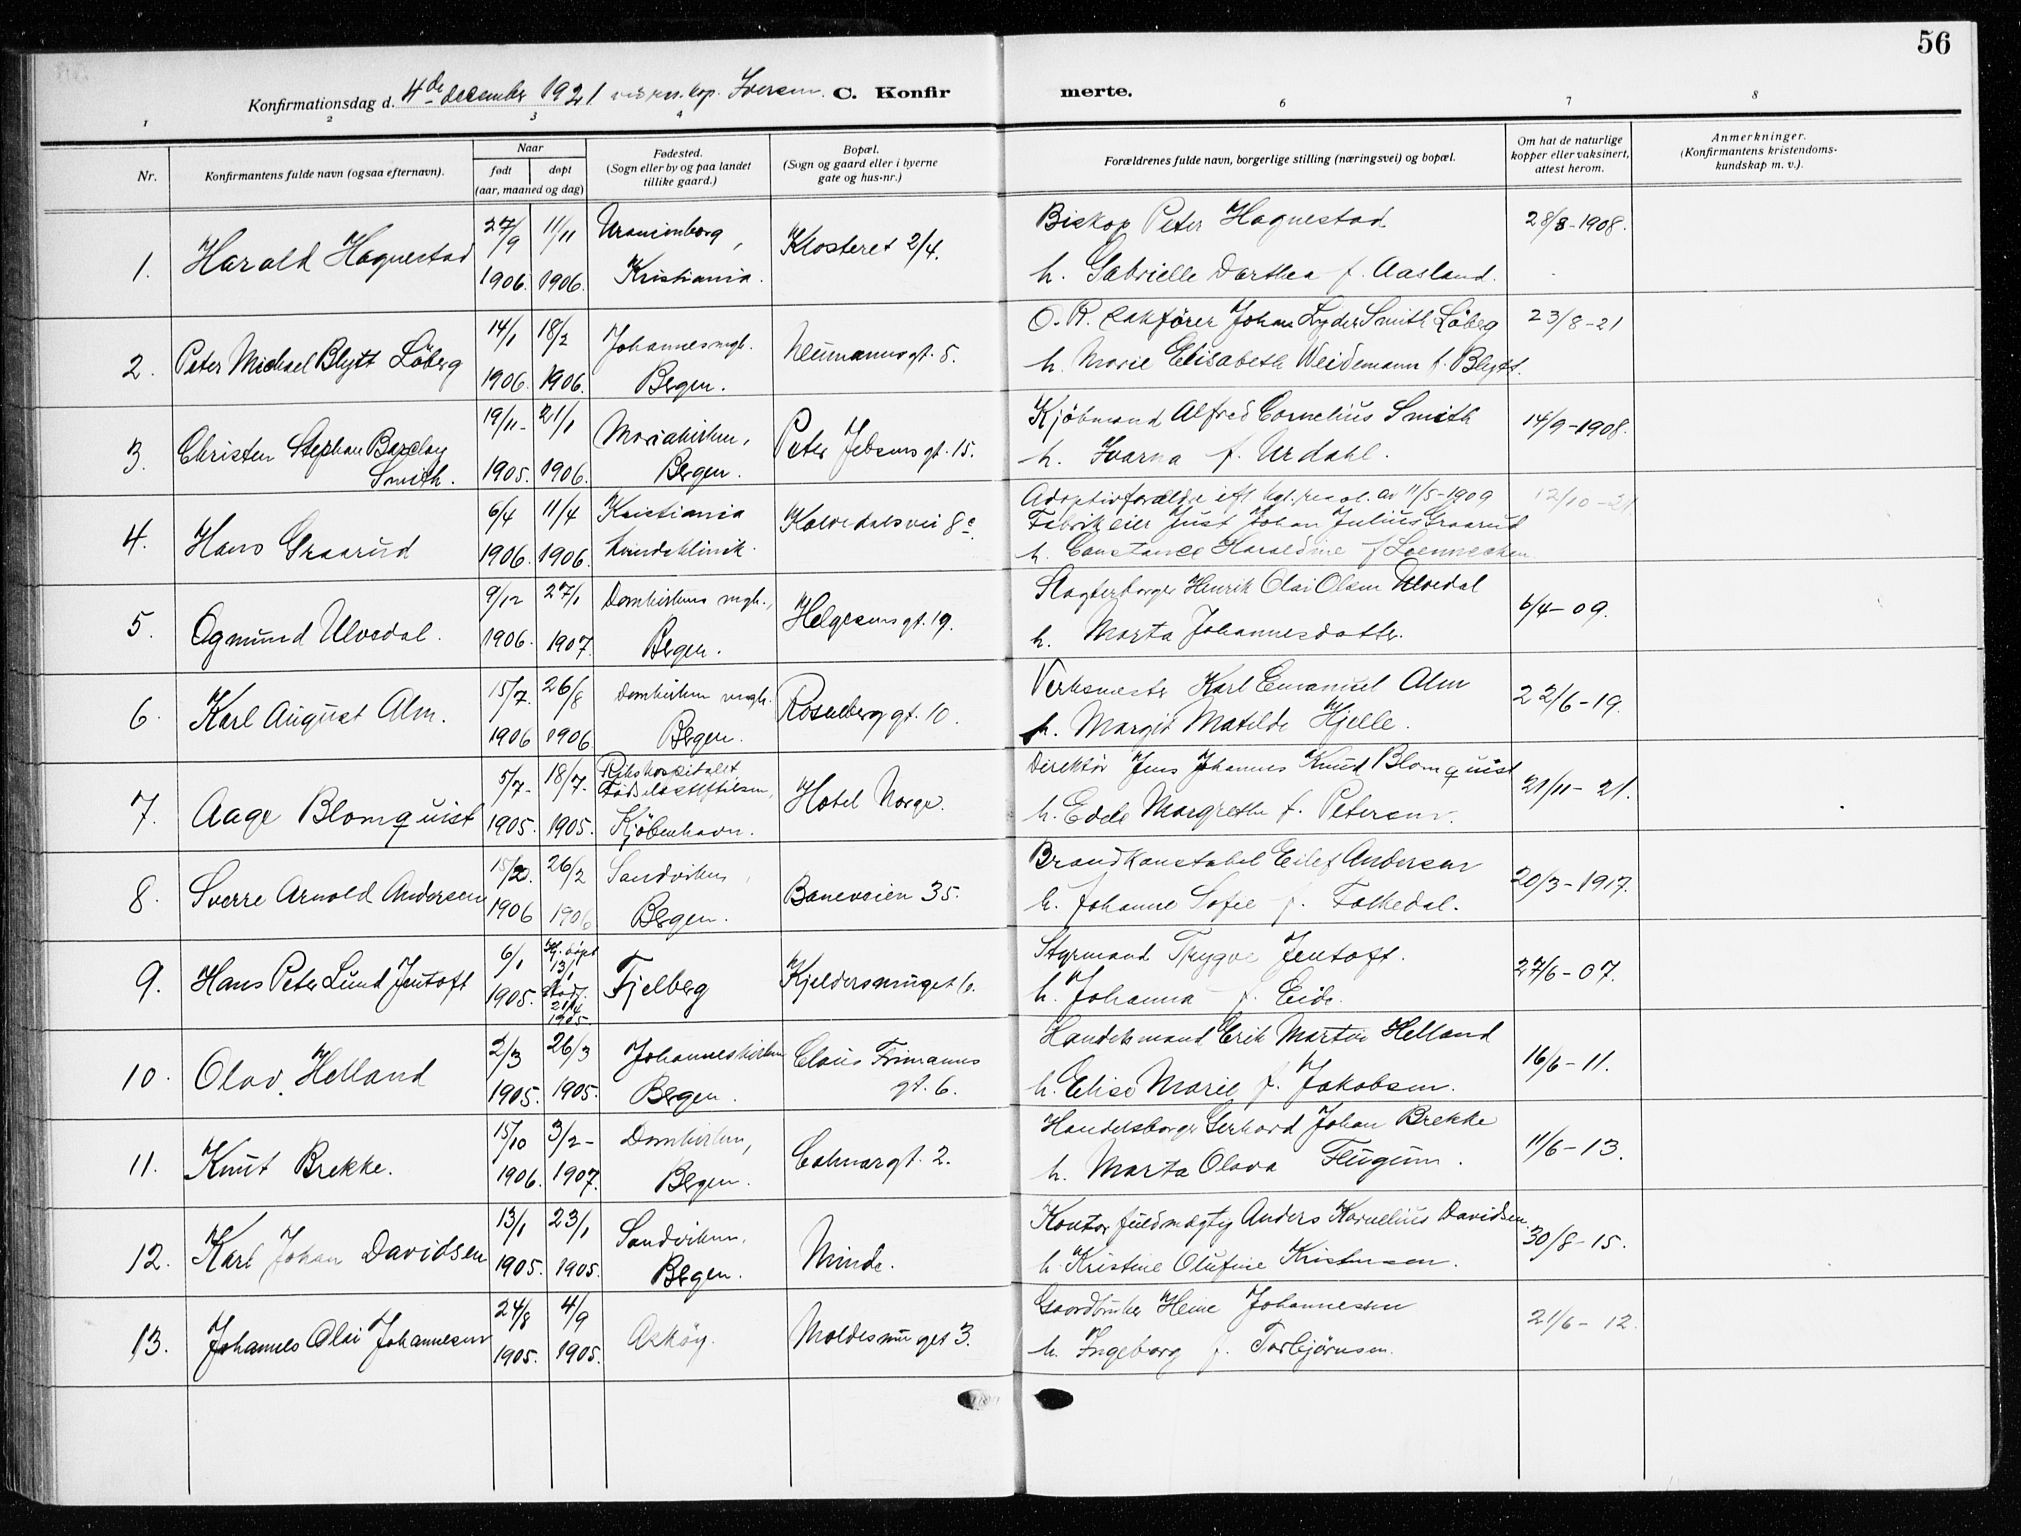 56
Konfirmationsdag d. 4de december 1921 ved res. kap. Iversen. C. Konfirmerte.
1 2 3 4 6 7 8
Nr. Konfirmantens fulde navn (ogsaa efternavn). Naar født døpt (aar, maaned og dag) Fødested. (Sogn eller by og paa landet tillike gaard.) Bopæl. (Sogn og gaard eller i byerne gate og hus-nr.) Forældrenes fulde navn, borgerlige stilling (næringsvei) og bopæl. Om hat de naturlige kopper eller vaksinert, attest herom. Anmerkninger. (Konfirmantens kristendomskundskap m. v.).
27/9 11/11 Uranienborg, Biskop Peter Hognestad 28/8-1908.
1. Harald Hognestad Klosteret 2/4.
1906. 1906. Kristiania. h. Gabrielle Dorthea f. Aasland.
14/1 18/2 Johannesmgh. O. R. sakfører Johan Lyder Smith Løberg 23/8-21
2. Peter Michael Blytt Löberg Neumannsgt. 5.
1906. 1906. Bergen. h. Marie Elisabeth Weidemann f. Blytt.
19/11- 21/1 Mariakirken, Kjöbmand Alfred Cornelius Smith 14/9-1908.
3. Christen Stephan Barclay Peter Jebsensgt. 15.
Smith. 1905. 1906. Bergen. h. Ivarna f. Urdahl.
6/4 11/4 Kristiania Adoptivforældre ifl. kgl. res. av 11/5-1909 12/10-21
4. Hans Graarud Kalvedalsvei 8c. Fabrikeier Just Johan Julius Graarud
1906. 1906. kvindeklinik. h. Constance Haraldine f. Loennechen
9/12 27/1 Domkirkens mgh., Slagterborger Henrik Olai Olsen Ulvedal
5. Ogmund Ulvedal. Helgesensgt. 19. 6/4-09.
1906. 1907. Bergen. h. Marta Johannesdotter.
15/7. 26/8 Domkirken mgh. Verksmester Karl Emanuel Alm
6. Karl August Alm. Rosenberggt. 10. 22/6-19.
1906 1906 Bergen. h. Margit Matilde Hjelle.
5/7- 18/7- Rikshospitalet Direktör Jens Johannes Knud Blomquist
Fødselsstiftelsen,
7. Aage Blomquist Hotel Norge. 21/11-21.
1905. 1905. Kjöbenhavn. h. Edele Margrethe f. Petersen.
26/2 Sandviken, Brandkonstabel Eilef Andersen
8. Sverre Arnold Andersen Baneveien 35. 20/3-1917.
1906 1906 Bergen. h. Johanne Sofie f. Folkedal.
6/1 hj. døpt 13/1 Styrmand Trygve Jentoft.
9. Hans Peter Lund Jentoft Fjelberg Kjeldersmuget 6. 27/6-07.
1905. stadf. 1905. h. Johanna f. Eide.
2/3 26/3 Johanneskirken Claus Frimanns Handelsmand Erik Martin Helland
10. Olav Helland gt. 6. 16/6-11.
1905. 1905. Bergen. h. Elise Marie f. Jakobsen.
15/10 3/2- Domkirken, Handelsborger Gerhard Johan Brekke
11. Knut Brekke. Calmargt. 2. 11/6-13.
1906. 1907. Bergen. h. Marta Olava Flugum.
13/1 23/1 Sandviken, Kontorfuldmægtig Anders Kornelius Davidsen
12. Karl Johan Davidsen Minde. 30/8-15.
1905. 1905. Bergen. h. Kristine Olufine Kristensen.
24/8 4/9 Gaardbruker Heine Johannesen
13. Johannes Olai Johannesen Askøy. Moldesmuget 3. 21/6-12.
1905. 1905. h. Ingeborg f. Torbjørnsen.